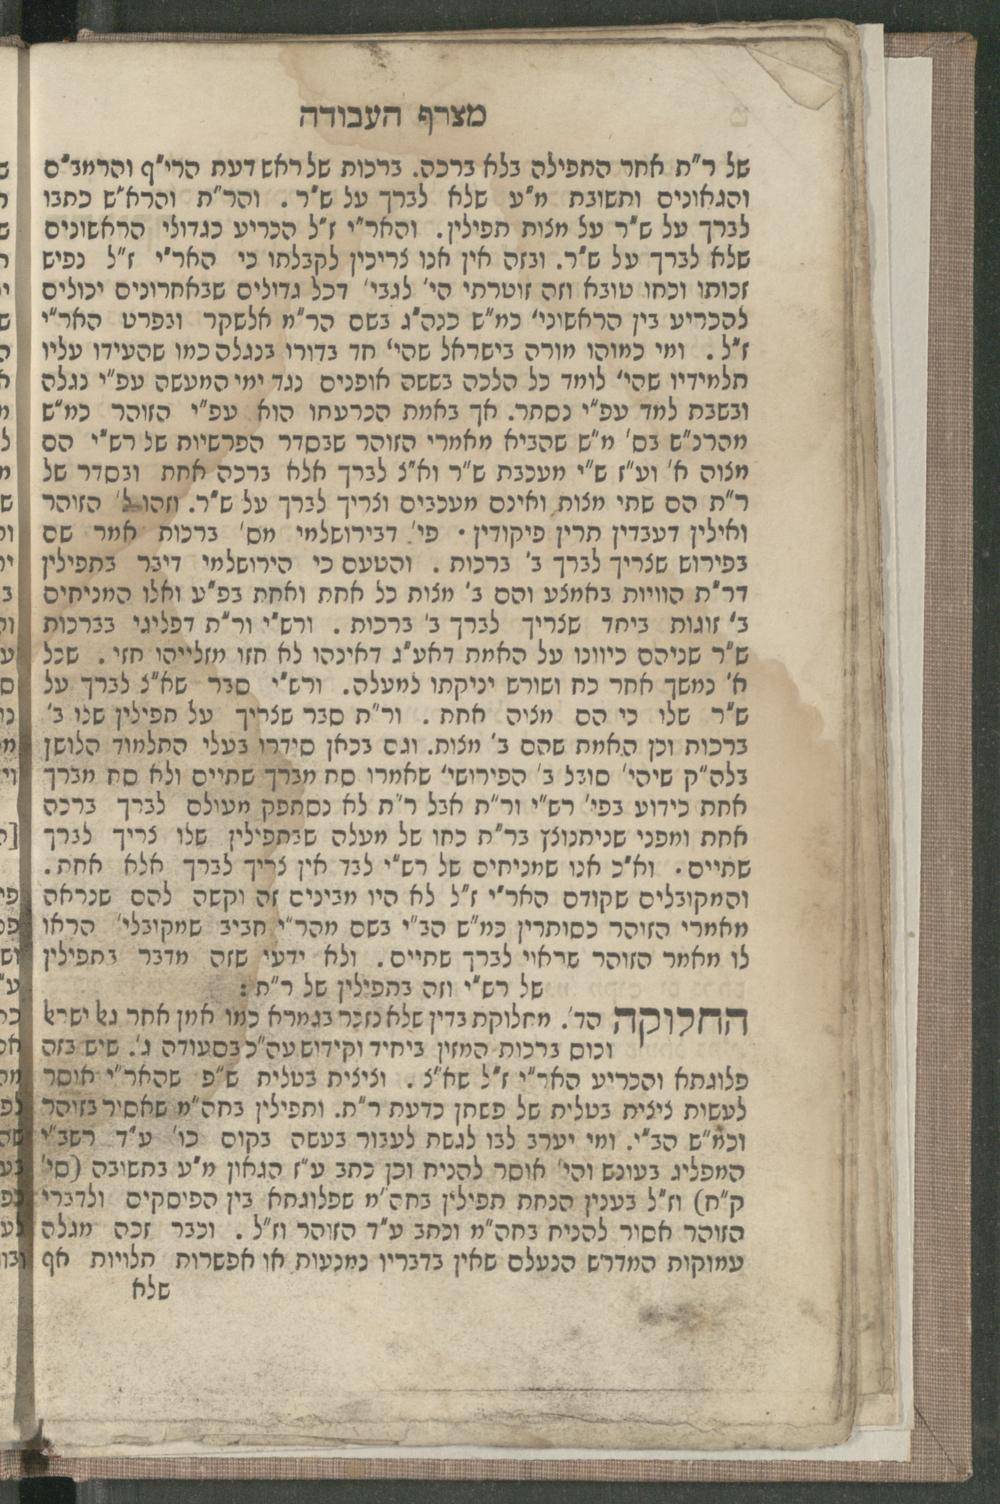 מצרף העבודה
של ר"ת אחר התפילה בלא ברכה. ברכות של ראש דעת הרי"ף והרמב"ם
והגאונים ותשובת מ"ע שלא לברך על ש"ר. והר"ת והרא"ש כתבו
לברך על ש"ר על מצות תפילין. והאר"י ז"ל הכריע כגדולי הראשונים
שלא לברך על ש"ר. ובזה אין אנו צריכין לקבלתו כי האר"י ז"ל נפיש
זכותו וכחו טובא וזה זוטרתי הי' לגבי' דכל גדולים שבאחרונים יכולים
להכריע בין הראשוני' כמ"ש כנה"ג בשם הר"מ אלשקר ובפרט האר"י
ז"ל. ומי כמוהו מורה בישראל שהי' חד בדורו בנגלה כמו שהעידו עליו
תלמידיו שהי' לומד כל הלכה בששה אופנים כנגד ימי המעשה עפ"י נגלה
ובשבת למד עפ"י נסתר. אך באמת הכרעתו הוא עפ"י הזוהר כמ"ש
מהרנ"ש בס' מ"ש שהביא מאמרי הזוהר שבסדר הפרשיות של רש"י הם
מצוה א' וע"ז ש"י מעכבת ש"ר וא"צ לברך אלא ברכה אחת ובסדר של
ר"ת הם שתי מצות ואינם מעכבים וצריך לברך על ש"ר. וזהו ל' הזוהר
ואילין דעבדין תרין פיקודין. פי' דבירושלמי מס' ברכות אמר שם
בפירוש שצריך לברך ב' ברכות. והטעם כי הירושלמי דיבר בתפילין
דר"ת הוויות באמצע והם ב' מצות כל אחת ואחת בפ"ע ואלו המניחים
ב' זוגות ביחד שצריך לברך ב' ברכות. ורש"י ור"ת דפליגי בברכות
ש"ר שניהם כיוונו על האמת דאע"ג דאינהו לא חזו מזלייהו חזי. שכל
א' נמשך אחר כח ושורש יניקתו למעלה. ורש"י סבר שא"צ לברך על
ש"ר שלו כי הם מצוה אחת. ור"ת סבר שצריך על תפילין שלו ב'
ברכות וכן האמת שהם ב' מצות. וגם בכאן סידרו בעלי התלמוד הלושן
בלה"ק שיהי' סובל ב' הפירושי' שאמרו סח מברך שתיים ולא סח מברך
אחת כידוע בפי' רש"י ור"ת אבל ר"ת לא נסתפק מעולם לברך ברכה
אחת ומפני שניתנוצץ בר"ת כחו של מעלה שבתפילין שלו צריך לברך
שתיים. וא"כ אנו שמניחים של רש"י לבד אין צריך לברך אלא אחת.
והמקובלים שקודם האר"י ז"ל לא היו מבינים זה וקשה להם שנראה
מאמרי הזוהר כסותרין כמ"ש הב"י בשם מהר"י חביב שמקובלי' הראו
לו מאמר הזוהר שראוי לברך שתיים. ולא ידעי שזה מדבר בתפילין
של רש"י וזה בתפילין של ר"ת:
החלוקה הד'. מחלוקת בדין שלא נזכר בגמרא כמו אמן אחר
וכוס ברכות המזון ביחיד וקידוש עה"כ בסעודה ג'. שיש בזה
פלוגתא והכריע האר"י ז"ל שא"צ. וציצית בטלית ש"פ שהאר"י אוסר
לעשות ציצית בטלית של פשתן כדעת ר"ת. ותפילין בחה"מ שאסיר בזוהר
וכמ"ש הב"י. ומי יערב לבו לגשת לעבור בעשה בקום כו' ע"ד רשב"י
המפליג בעונש והי' אוסר להניח וכן כתב ע"ז הגאון מ"ע בתשובה (סי'
ק"ח) וז"ל בענין הנחת תפילין בחה"מ שפלוגתא בין הפוסקים ולדברי
הזוהר אסור להניח בחה"מ וכתב ע"ד הזוהר וז"ל. וכבר זכה מגלה
עמוקות המדרש הנעלם שאין בדבריו נמנעות או אפשרות תלויות אף
שלא